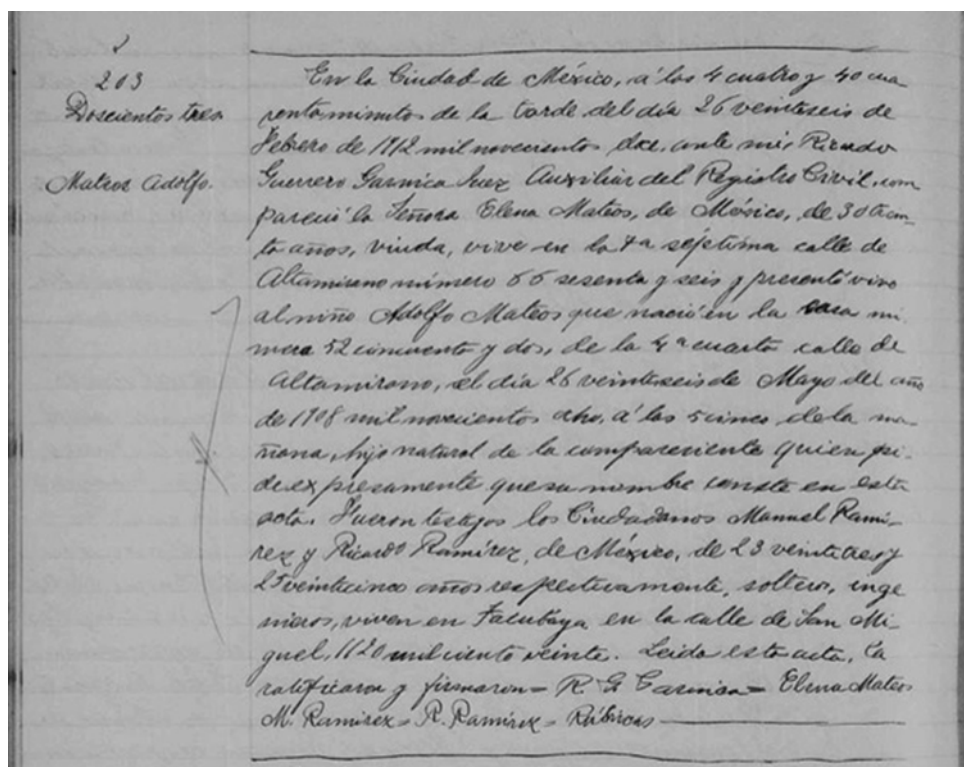 203
Doscientos tres
Mateos Adolfo.
En la Ciudad de México, á las 4 cuatro y 40 cua
renta minutos de la tarde del día 26 veintiseis de
Febrero de 1912 mil novecientos doce, ante mí, Ricardo
Guerrero Garnica Juez Auxiliar del Registro Civil, com
pareció la Señora Elena Mateos, de México, de 30 trein
ta años, viuda, vive en la 7a séptima calle de
Altamirano número 66 sesenta y seis y presentó vivo
al niño Adolfo Mateos que nació en la casa nú
mero 52 cincuenta y dos, de la 4a cuarta calle de
Altamirano, el día 26 veintiseis de Mayo del año
de 1908 mil novecientos ocho, á las 5 cinco de la ma
ñana, hijo natural de la compareciente quien pi-
de expresamente que su nombre conste en esta
acta. Fueron testigos los Ciudadanos Manuel Rami-
rez y Ricardo Ramírez, de México, de 23 veintitres y
25 veinticinco años respectivamente, solteros, inge
nieros, viven en Tacubaya en la calle de San Mi-
guel, 1120 mil ciento veinte. Leida esta acta, la
ratificaron y firmaron = R. G. Garnica = Elena Mateos
M. Ramirez = R. Ramírez = Rúbricas